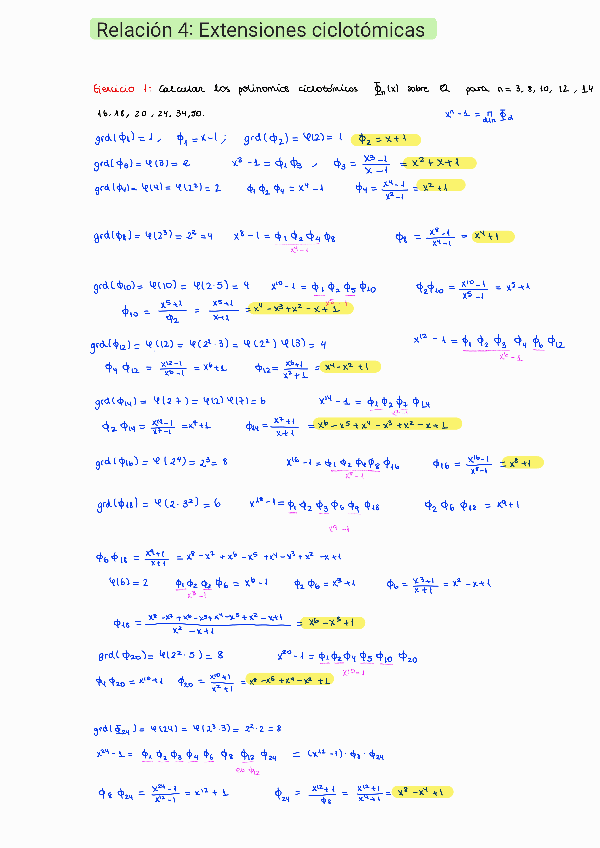 Relación 4: Extensiones ciclotómicas
Ejercicio 1: Calcular los polinomios ciclotómicos Φn(x) sobre Q para n = 3, 8, 10, 12, 14
16, 18, 20, 24, 34, 50. xⁿ - 1 = Π d|n Φd
grd(ϕ1) = 1, ϕ1 = x-1; grd(ϕ2) = φ(2) = 1 ϕ2 = x+1
x³-1 = ϕ1 ϕ3, ϕ3 = x³-1/x-1 = x²+x+1
ϕ1 ϕ2 ϕ4 = x⁴-1 ϕ4 = x⁴-1/x²-1 = x²+1
grd(ϕ8) = φ(2³) = 2² = 4 x⁸-1 = ϕ1 ϕ2 ϕ4 ϕ8 ϕ8 = x⁸-1/x⁴-1 = x⁴+1
x⁴-1
grd(ϕ10) = φ(10) = φ(2·5) = 4 x¹⁰-1 = ϕ1 ϕ2 ϕ5 ϕ10 ϕ2ϕ10 = x¹⁰-1/x⁵-1 = x⁵+1
x⁵-1
ϕ10 = x⁵+1/ϕ2 = x⁵+1/x+1 = x⁴-x³+x²-x+1
grd(ϕ12) = φ(12) = φ(2²·3) = φ(2²) φ(3) = 4 x¹²-1 = ϕ1 ϕ2 ϕ3 ϕ4 ϕ6 ϕ12
x⁶-1
ϕ4 ϕ12 = x¹²-1/x⁶-1 = x⁶+1 ϕ12 = x⁶+1/x²+1 = x⁴-x²+1
grd(ϕ14) = φ(2 7) = φ(2) φ(7) = 6 x¹⁴-1 = ϕ1 ϕ2 ϕ7 ϕ14
ϕ2 ϕ14 = x¹⁴-1/x⁷-1 = x⁷+1 ϕ14 = x⁷+1/x+1 = x⁶-x⁵+x⁴-x³+x²-x+1
grd(ϕ16) = φ(2⁴) = 2³ = 8 x¹⁶-1 = ϕ1 ϕ2 ϕ4 ϕ8 ϕ16 ϕ16 = x¹⁶-1/x⁸-1 = x⁸+1
x⁸-1
grd(ϕ18) = φ(2·3²) = 6 x¹⁸-1 = ϕ1 ϕ2 ϕ3 ϕ6 ϕ9 ϕ18 ϕ2 ϕ6 ϕ18 = x⁹+1
x⁹-1
ϕ6 ϕ18 = x⁹+1/x+1 = x⁸-x⁷+x⁶-x⁵+x⁴-x³+x²-x+1
φ(6) = 2 ϕ1 ϕ2 ϕ3 ϕ6 = x⁶-1 ϕ2 ϕ6 = x³+1 ϕ6 = x³+1/x+1 = x²-x+1
x³-1
ϕ18 = x⁸-x⁷+x⁶-x⁵+x⁴-x³+x²-x+1/x²-x+1 = x⁶-x³+1
grd(ϕ20) = φ(2²·5) = 8 x²⁰-1 = ϕ1 ϕ2 ϕ4 ϕ5 ϕ10 ϕ20
x¹⁰-1
ϕ4 ϕ20 = x¹⁰+1 ϕ20 = x¹⁰+1/x²+1 = x⁸-x⁶+x⁴-x²+1
grd(Φ24) = φ(24) = φ(2³·3) = 2²·2 = 8
x²⁴-1 = ϕ1 ϕ2 ϕ3 ϕ4 ϕ6 ϕ8 ϕ12 ϕ24 = (x¹²-1)·ϕ8·ϕ24
ϕ8 ϕ24 = x²⁴-1/x¹²-1 = x¹²+1 ϕ24 = x¹²+1/ϕ8 = x¹²+1/x⁴+1 = x⁸-x⁴+1